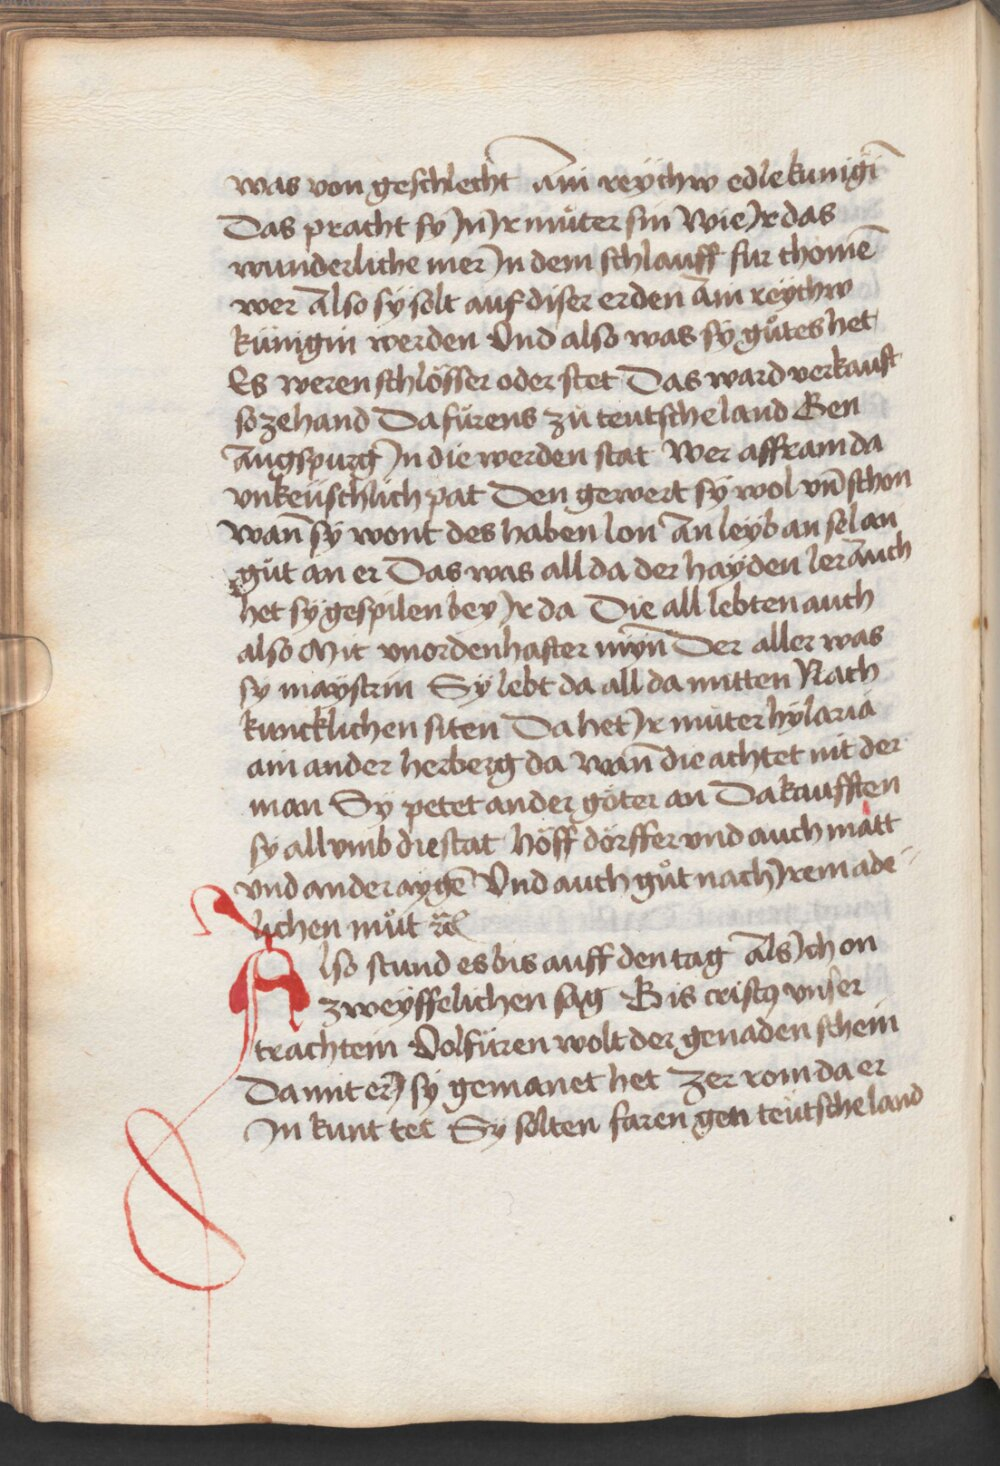 was von geschlecht ain reychw edle kunigī
Das pracht sy Jn Jr můter sin Wie Jr das
wunderliche mer Jn dem schlauff für chomē
wer Also sy solt auf diser erden ain reychw
künigin werden Vnd also was sy gůtes het
Es weren schlösser oder stet Das ward verkauft
so zehand Da fůrens zů teutsche land Gen
augspurg Jn die werden stat Wer affram da
vnkeüschlich pat Den gewert sy wol vn̄ schon
Wan̄ sy wont des haben lon An leyb an sel an
gůt an er Das was all da der hayden ler auch
het sy gespilen bey Jr da Die all lebten auch
also Mit vnordenhafter myn̄ Der aller was
sy maystrin Sy lebt da all da mitten Nach
kuncklichen siten Da het Jr můter hylaria
ain ander herberg da Wan̄ die achtet nit der
man Sy petet ander göter an Da kaufften
sy all vmb die stat höff dörffer vnd auch matt
vnd ander aygē Vnd auch gůt nach Jrem ade
lichen můt ꝛc̄
Also stund es bis auff den tag Als Jch on
zweyffelichen sag Bis cristꝰ vnser
trachtein Volfüren wolt der genaden schein
Da mit er sy gemanet het Zer rom da er
Jn kunt tet Sy solten faren gen teütsche land